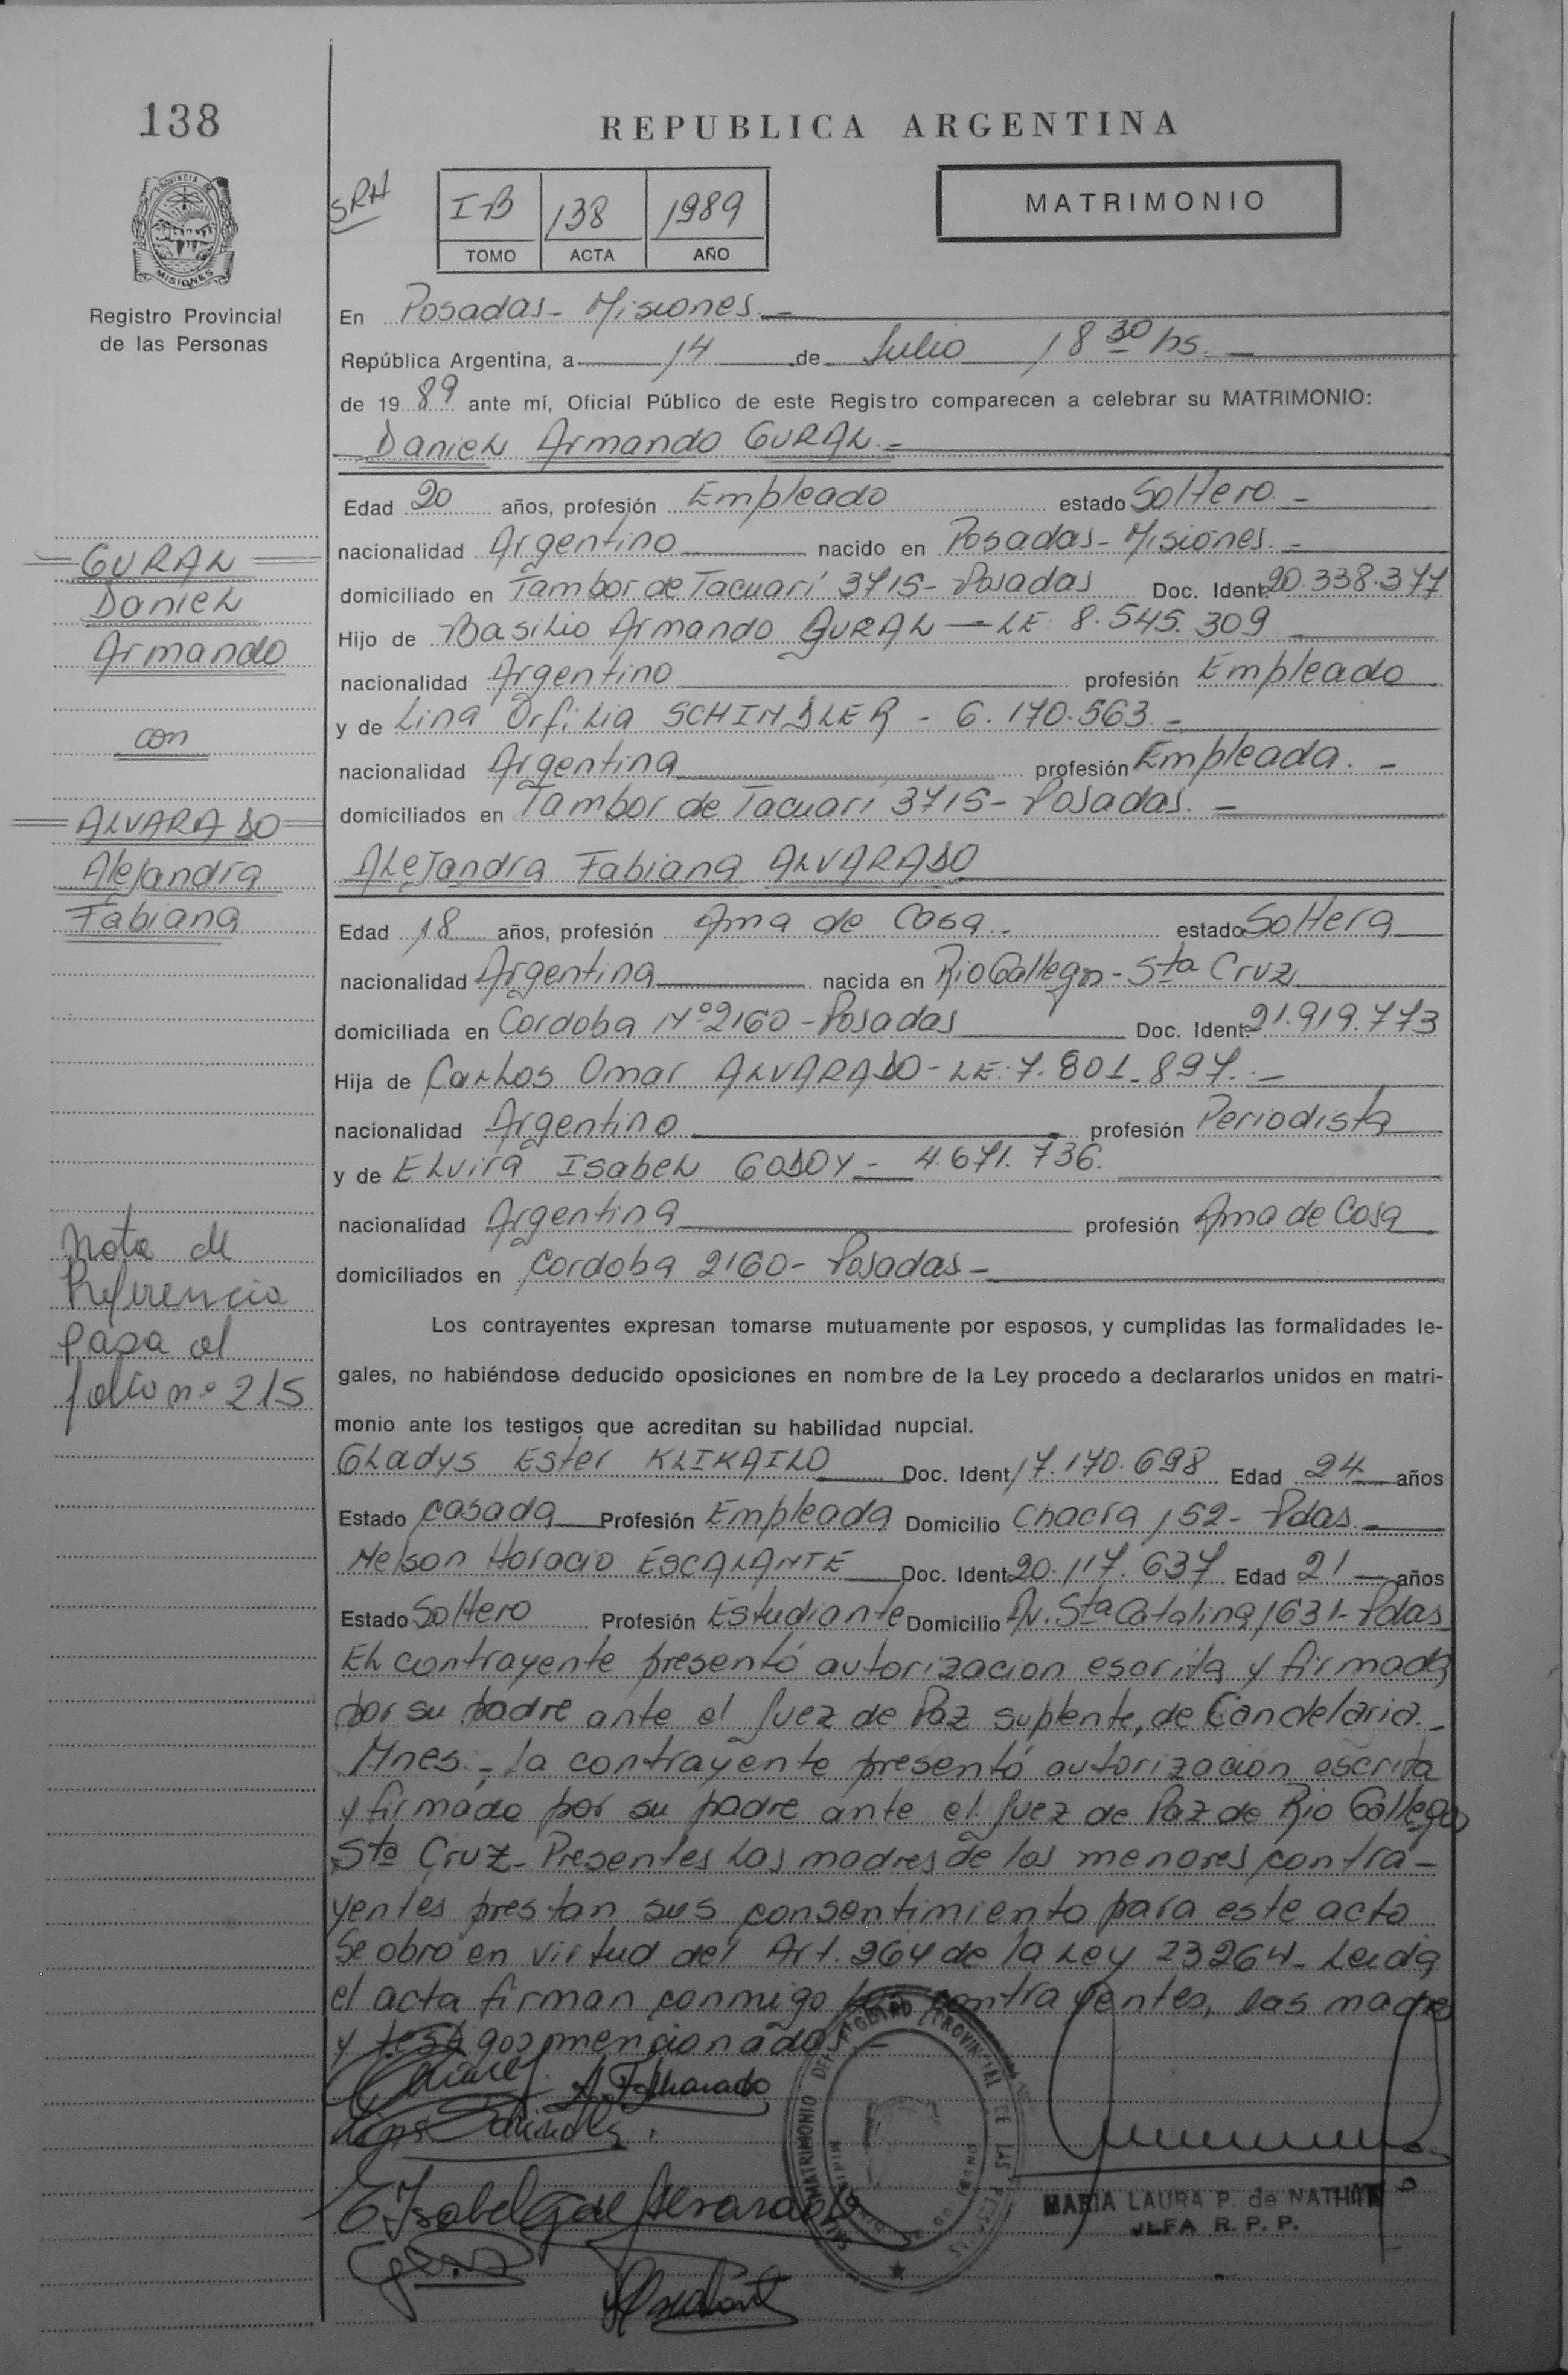 138
REPUBLICA ARGENTINA
PROVINCIA DE
MISIONES
Registro Provincial
de las Personas
SRH
I-B 138 1989
TOMO ACTA AÑO
MATRIMONIO
En Posadas - Misiones. -
República Argentina, a 14 de Julio 18 30 hs. -
de 19 89 ante mí, Oficial Público de este Registro comparecen a celebrar su MATRIMONIO:
Daniel Armando GURAL -
Edad 20 años, profesión Empleado estado Soltero. -
nacionalidad Argentino nacido en Posadas - Misiones. -
domiciliado en Tambor de Tacuarí 3715 - Posadas Doc. Ident. 20.338.377
Hijo de Basilio Armando GURAL - LE 8.545.309
nacionalidad Argentino profesión Empleado
y de Lina Orfilia SCHINDLER - 6.170.563. -
nacionalidad Argentina profesión Empleada. -
domiciliados en Tambor de Tacuarí 3715 - Posadas. -
Alejandra Fabiana ALVARADO
Edad 18 años, profesión Ama de Casa. - estado Soltera
nacionalidad Argentina nacida en Rio Gallegos - Sta Cruz
domiciliada en Cordoba Nº 2160 - Posadas Doc. Ident. 21.919.773
Hija de Carlos Omar ALVARADO - LE. 7.801.897. -
nacionalidad Argentino profesión Periodista
y de Elvira Isabel GODOY - 4.671.736.
nacionalidad Argentina profesión Ama de Casa
domiciliados en Cordoba 2160 - Posadas -
Los contrayentes expresan tomarse mutuamente por esposos, y cumplidas las formalidades le-
gales, no habiéndose deducido oposiciones en nombre de la Ley procedo a declararlos unidos en matri-
monio ante los testigos que acreditan su habilidad nupcial.
Gladys Ester KLIKAILO Doc. Ident. 17.170.698 Edad 24 años
Estado Casada Profesión Empleada Domicilio Chacra 152 - Pdas. -
Nelson Horacio ESCALANTE Doc. Ident. 20.117.637 Edad 21 - años
Estado Soltero Profesión Estudiante Domicilio Av. Sta Catalina 1631 - Pdas
El contrayente presentó autorizacion escrita y firmada
por su padre ante el Juez de Paz suplente, de Candelaria. -
Mnes. - La contrayente presentó autorización escrita
y firmado por su padre ante el Juez de Paz de Rio Gallegos
Sta Cruz - Presentes las madres de los menores contra-
yentes prestan sus consentimiento para este acto
Se obró en virtud del Art. 264 de la Ley 23264 - Leida
el acta firman conmigo los contrayentes, las madres
y testigos mencionados -
A. F. Alvarado
E. Isabel G. de Alvarado
MATRIMONIO DEL REGISTRO PROVINCIAL DE LAS PERSONAS
MARIA LAURA P. de NATHAN
JEFA R. P. P.
GURAL
Daniel
Armando
con
ALVARADO
Alejandra
Fabiana
Nota de
Referencia
pasa al
folio nº 215